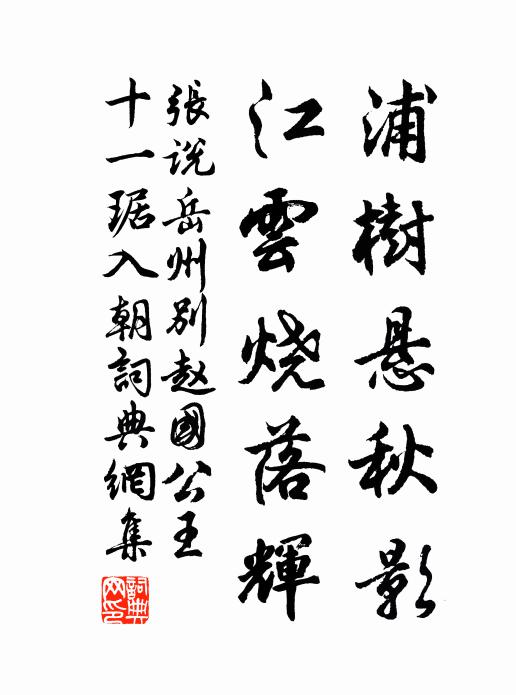 浦樹悬秋影
江雲烧落輝
張说岳州别赵國公王
十一琚入朝詞典網集
詞典
网印